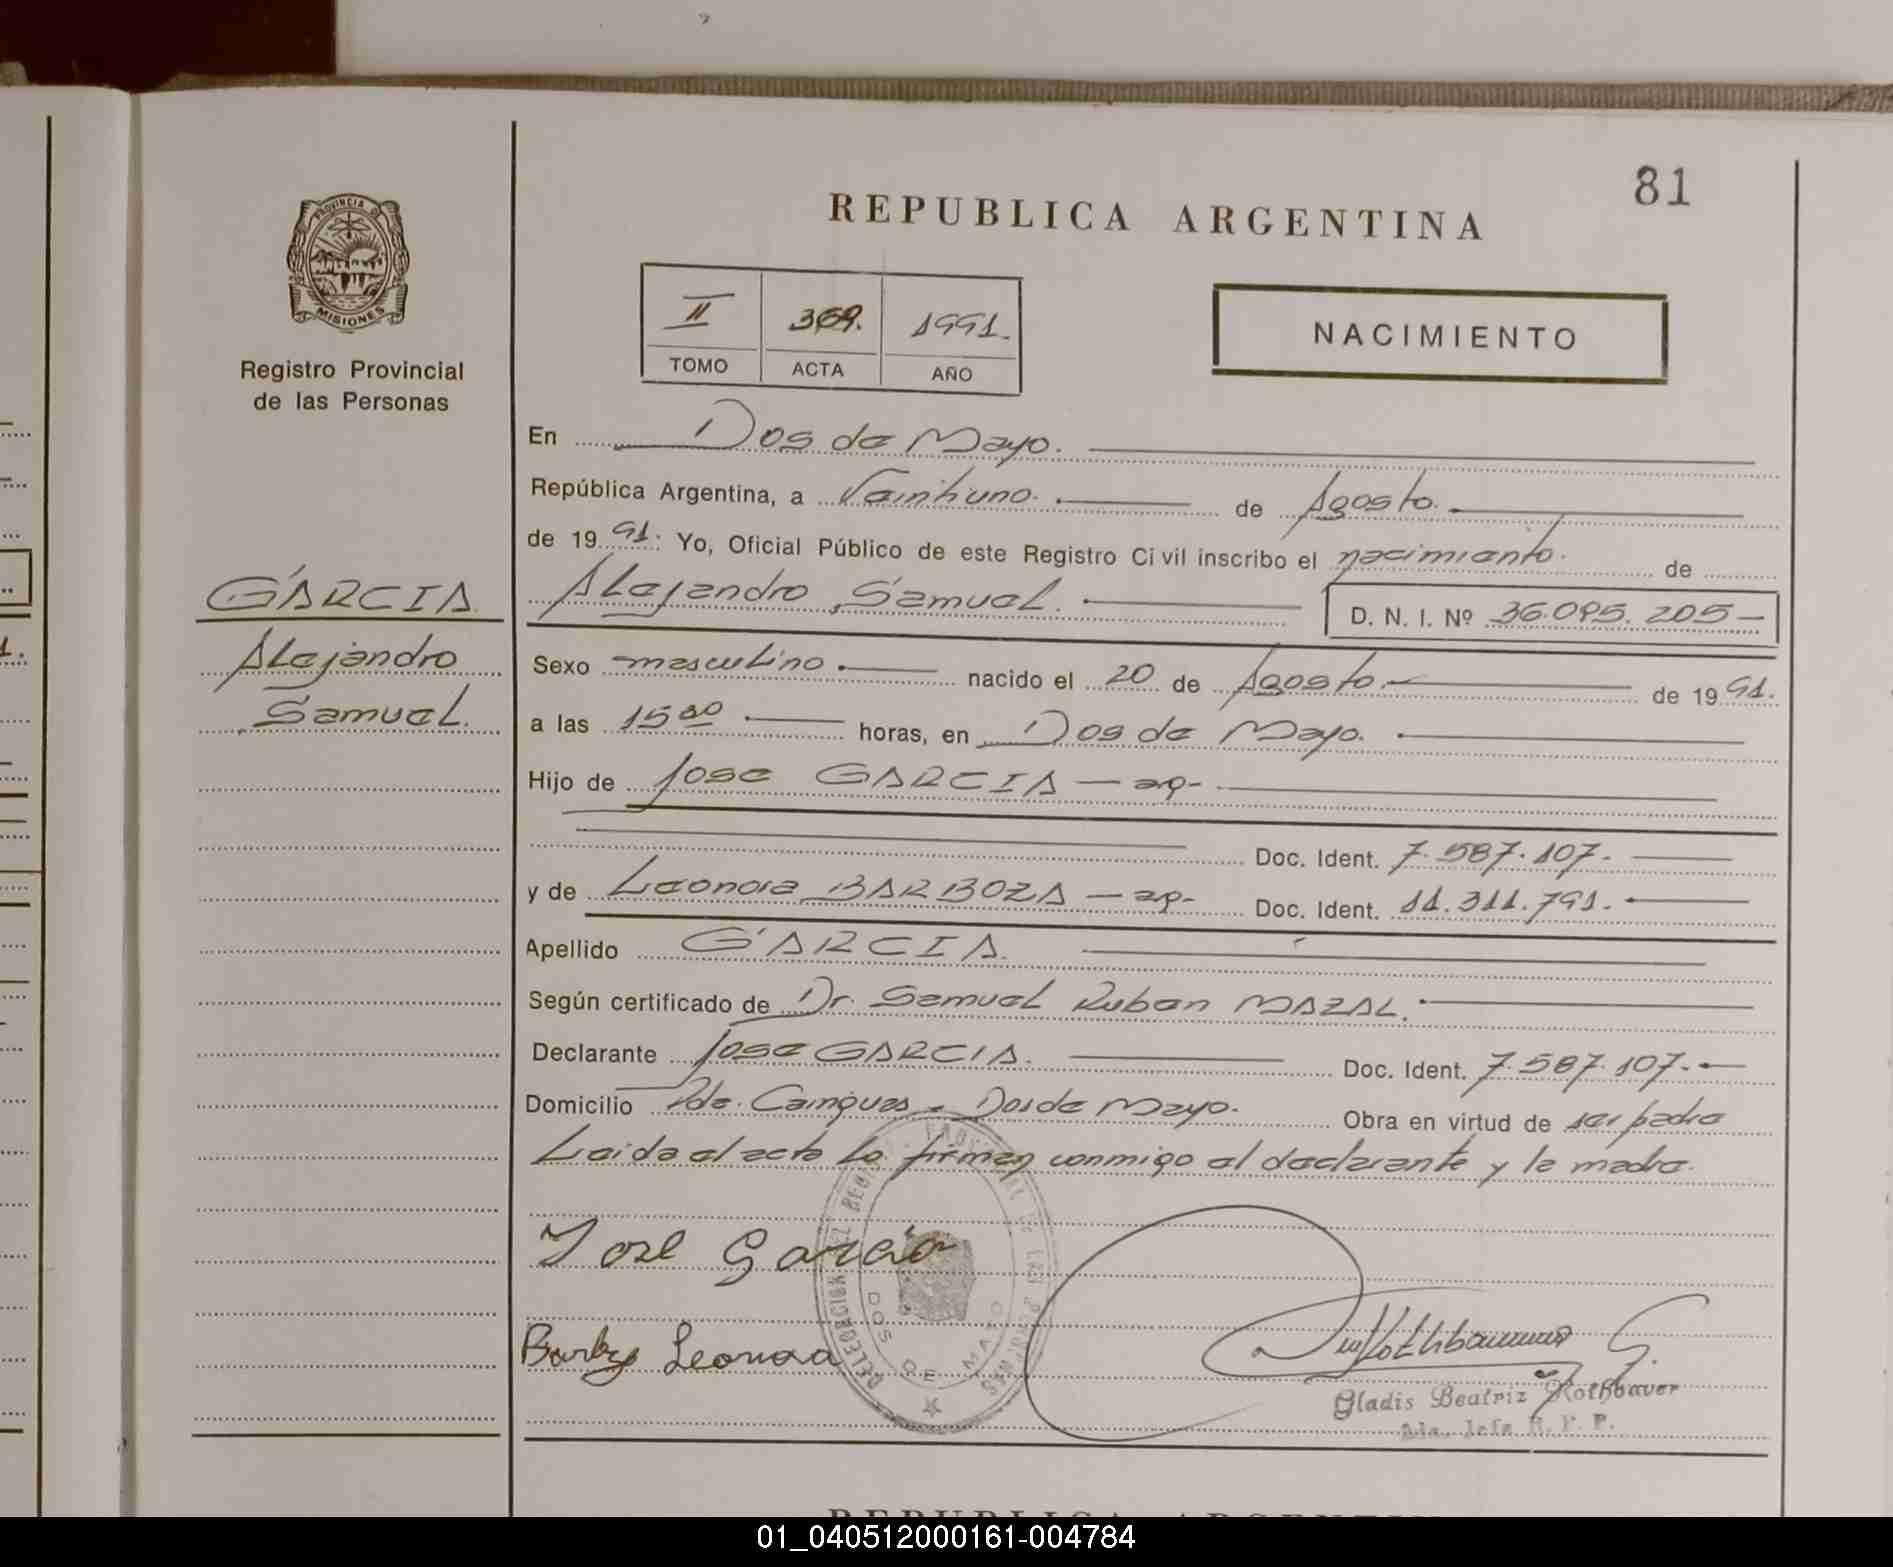 81
REPUBLICA ARGENTINA
PROVINCIA DE
MISIONES
Registro Provincial
de las Personas
II 369. 1991.
TOMO ACTA AÑO
NACIMIENTO
En Dos de Mayo.
República Argentina, a Veintiuno. de Agosto.
de 1991: Yo, Oficial Público de este Registro Civil inscribo el nacimiento. de
GARCIA
Alejandro
Samuel.
Alejandro Samuel. D. N. I. Nº 36.095.205-
Sexo masculino. nacido el 20 de Agosto. de 1991.
a las 15 00 horas, en Dos de Mayo.
Hijo de Jose GARCIA - ar-
Doc. Ident. 7.587.107.
y de Leonora BARBOZA - ar- Doc. Ident. 11.311.791.
Apellido GARCIA.
Según certificado de Dr. Samuel Ruben MAZAL.
Declarante Jose GARCIA. Doc. Ident. 7.587.107.
Domicilio Pde. Cainguas - Dos de Mayo. Obra en virtud de ser padre
Leida el acta la firman conmigo el declarante y la madre.
Jose Garcia
Leonora
DOS DE MAYO
Gladis Beatriz Rothbauer
R. P. P.
REPUBLICA ARGENTINA
01_040512000161-004784